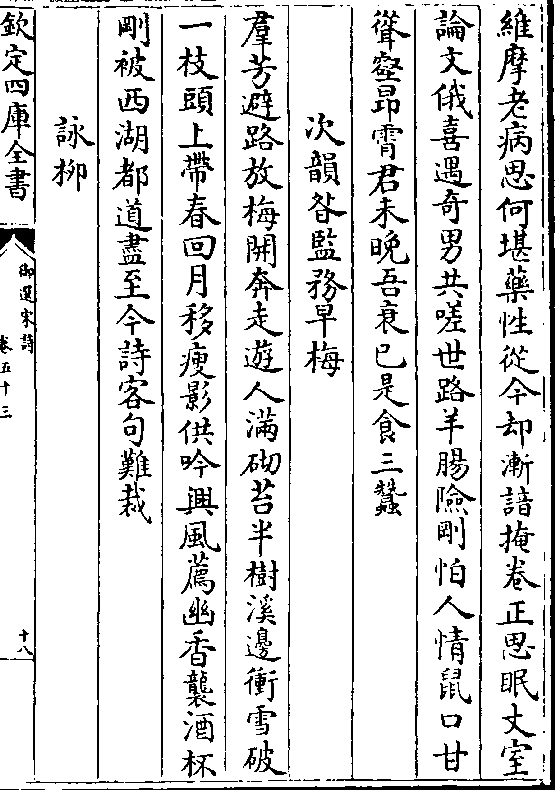 維摩老病思何堪藥性從今却漸諳掩卷正思眠丈室
論文俄喜遇奇男共嗟世路羊腸險剛怕人情鼠口甘
聳壑昂霄君未晚吾衰已是食三蠶
次韻昝監務早梅
羣芳避路放梅開奔走遊人滿砌苔半樹溪邊衝雪破
一枝頭上帶春回月移瘦影供吟興風薦幽香襲酒杯
剛被西湖都道盡至今詩客句難裁
詠柳
欽定四庫全書
御選宋詩
卷五十三
十八